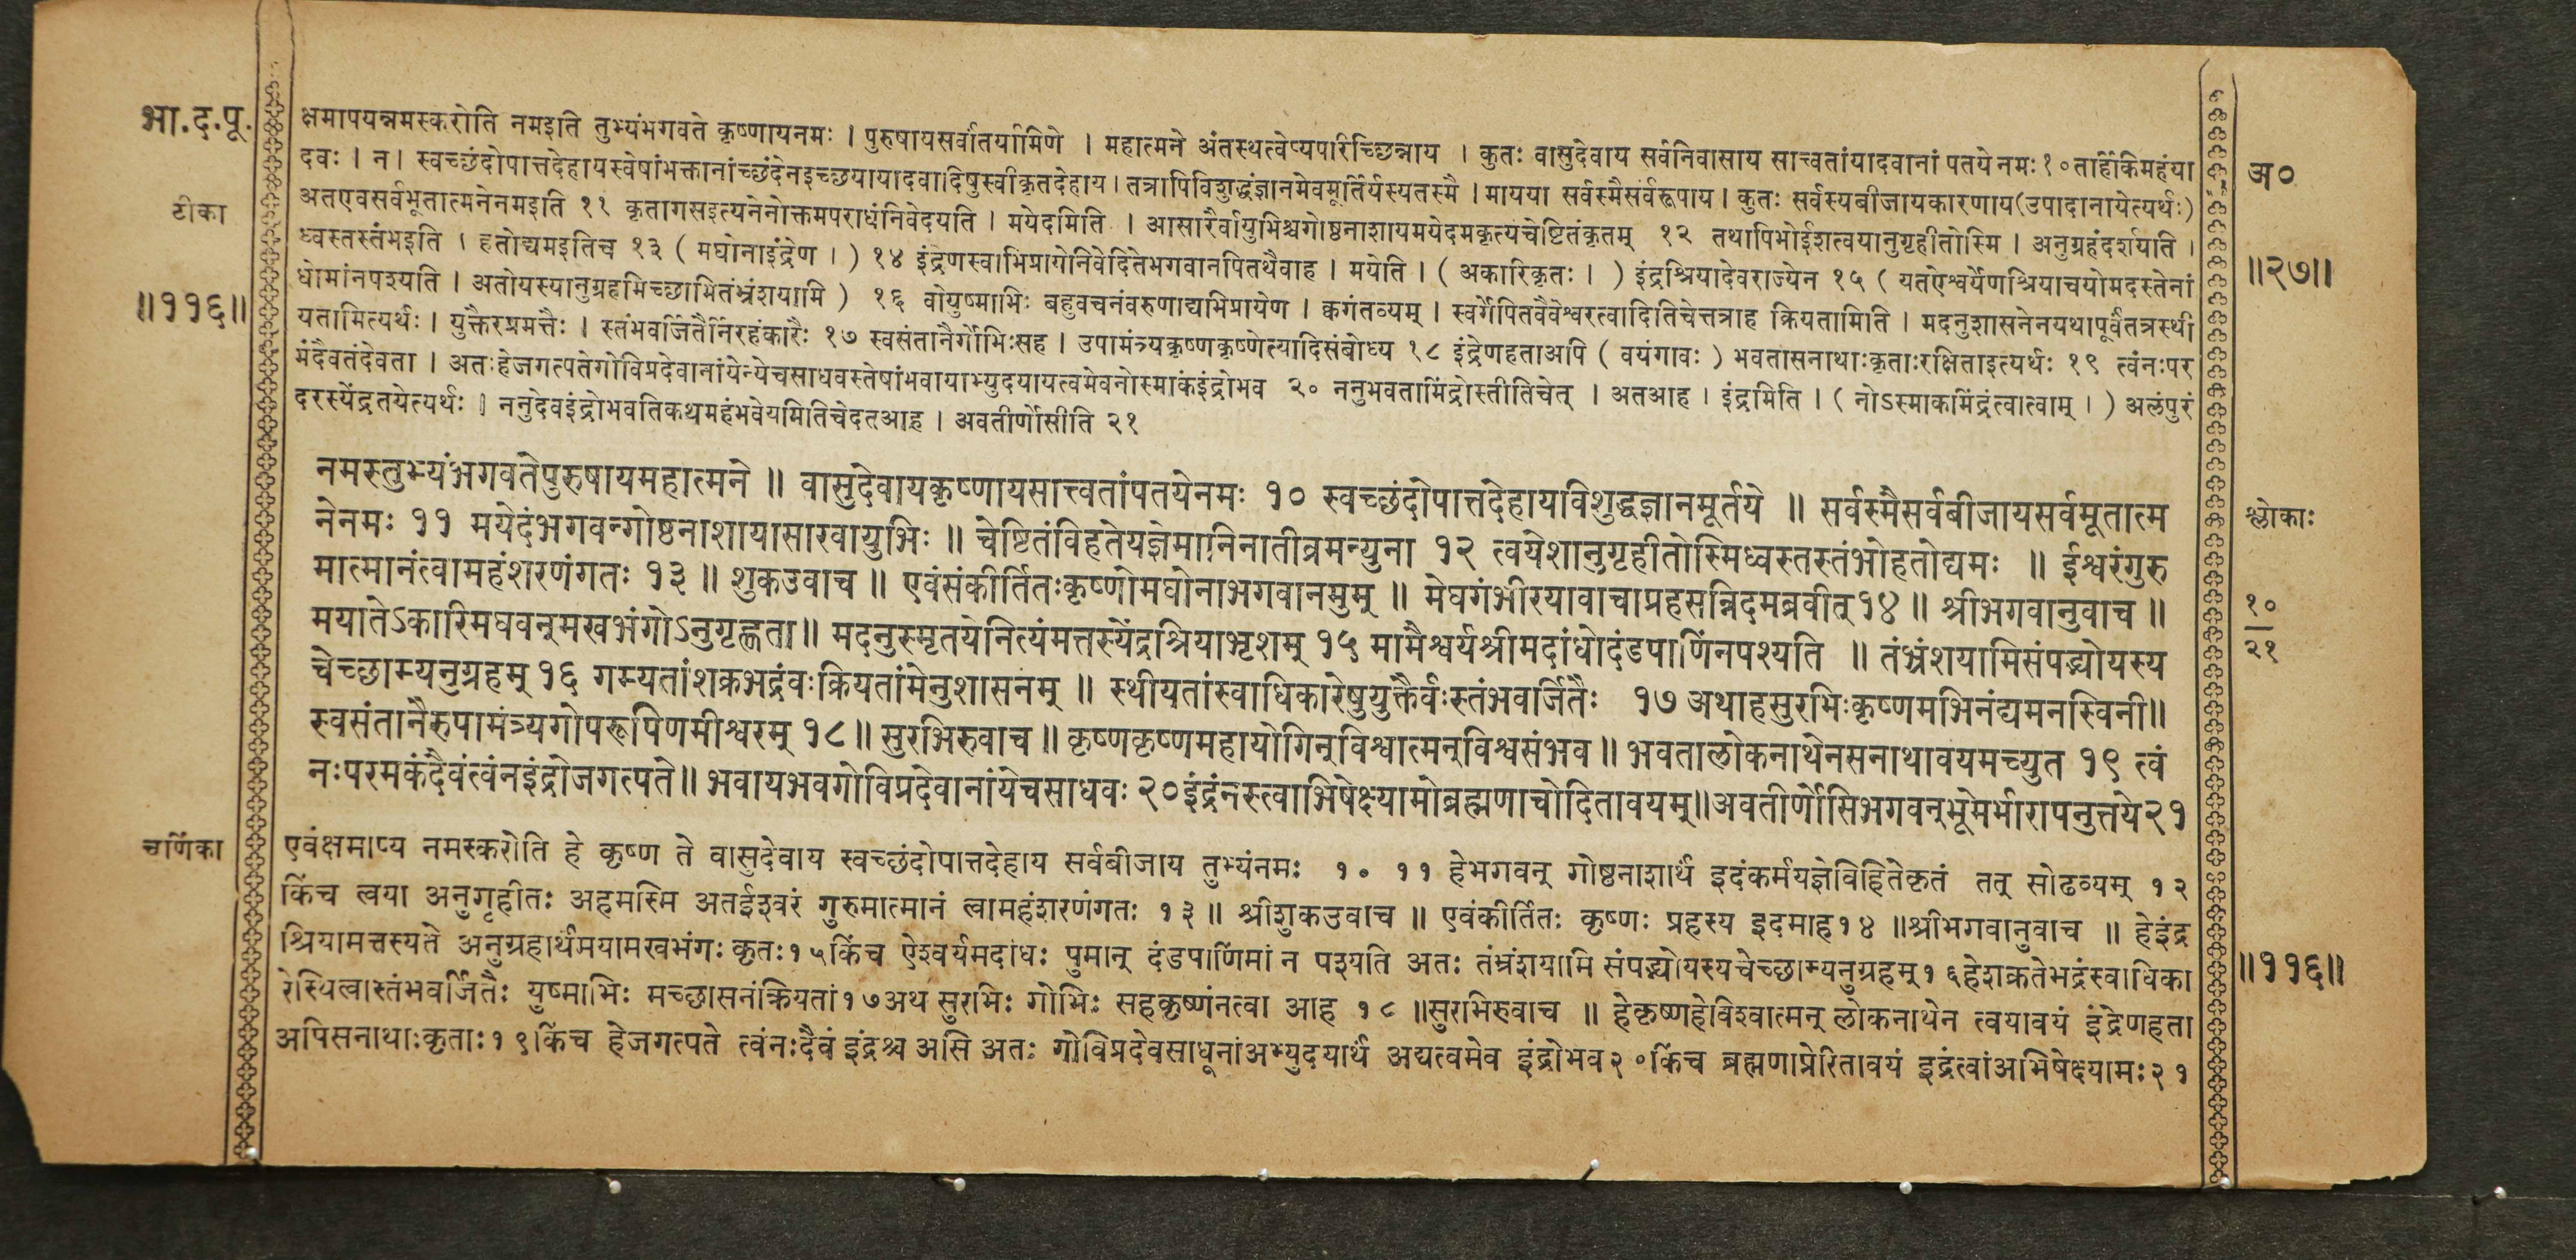 भा.द.पू.
टीका
॥११६॥
क्षमापयन्नमस्करोति नमइति तुभ्यंभगवते कृष्णायनमः । पुरुषायसर्वांतर्यामिणे । महात्मने अंतस्थत्वेप्यपरिच्छिन्नाय । कुतः वासुदेवाय सर्वनिवासाय सात्त्वतांयादवानां पतये नमः१०तर्हिकिमहंया
दवः । न। स्वच्छंदोपात्तदेहायस्वेषांभक्तानांच्छंदेनइच्छयायादवादिषुस्वीकृतदेहाय। तत्रापिविशुद्धंज्ञानमेवमूर्तिर्यस्यतस्मै । मायया सर्वस्मैसर्वरूपाय। कुतः सर्वस्यबीजायकारणाय(उपादानायेत्यर्थः)
अतएवसर्वभूतात्मनेनमइति ११ कृतागसइत्यनेनोक्तमपराधंनिवेदयति । मयेदमिति । आसारैर्वायुभिश्चगोष्ठनाशायमयेदमकृत्यंचेष्टितंकृतम् १२ तथापिभोईशत्वयानुगृहीतोस्मि । अनुग्रहंदर्शयति ।
ध्वस्तस्तंभइति । हतोद्यमइतिच १३ ( मघोनाइंद्रेण । ) १४ इंद्रेणस्वाभिप्रायेनिवेदितेभगवानपितथैवाह । मयेति । ( अकारिकृतः । ) इंद्रश्रियादेवराज्येन १५ ( यतऐश्वर्येणश्रियाचयोमदस्तेनां
धोमांनपश्यति । अतोयस्यानुग्रहमिच्छामितंभ्रंशयामि ) १६ वोयुष्माभिः बहुवचनंवरुणाद्यभिप्रायेण । क्वगंतव्यम् । स्वर्गेपितवैवेश्वरत्वादितिचेत्तत्राह क्रियतामिति । मदनुशासनेनयथापूर्वंतत्रस्थी
यतामित्यर्थः । युक्तैरप्रमत्तैः । स्तंभवर्जितैर्निरहंकारैः १७ स्वसंतानैर्गोभिःसह । उपामंत्र्यकृष्णकृष्णेत्यादिसंबोध्य १८ इंद्रेणहताअपि ( वयंगावः ) भवतासनाथाःकृताःरक्षिताइत्यर्थः १९ त्वंनःपर
मंदैवतंदेवता । अतःहेजगत्पतेगोविप्रदेवानांयेन्येचसाधवस्तेषांभवायाभ्युदयायत्वमेवनोस्माकंइंद्रोभव २० ननुभवतामिंद्रोस्तीतिचेत् । अतआह । इंद्रमिति । ( नोऽस्माकमिंद्रंत्वात्वाम् । ) अलंपुरं
दरस्येंद्रतयेत्यर्थः । ननुदेवइंद्रोभवतिकथमहंभवेयमितिचेदतआह । अवतीर्णोसीति २१
नमस्तुभ्यंभगवतेपुरुषायमहात्मने ॥ वासुदेवायकृष्णायसात्त्वतांपतयेनमः १० स्वच्छंदोपात्तदेहायविशुद्धज्ञानमूर्तये ॥ सर्वस्मैसर्वबीजायसर्वभूतात्म
नेनमः ११ मयेदंभगवन्गोष्ठनाशायासारवायुभिः ॥ चेष्टितंविहतेयज्ञेमानिनातीव्रमन्युना १२ त्वयेशानुगृहीतोस्मिध्वस्तस्तंभोहतोद्यमः ॥ ईश्वरंगुरु
मात्मानंत्वामहंशरणंगतः १३ ॥ शुकउवाच ॥ एवंसंकीर्तितःकृष्णोमघोनाभगवानमुम् ॥ मेघगंभीरयावाचाप्रहसन्निदमब्रवीत्१४ ॥ श्रीभगवानुवाच ॥
मयातेऽकारिमघवन्मखभंगोऽनुगृह्णता॥ मदनुस्मृतयेनित्यंमत्तस्येंद्रश्रियाभृशम् १५ मामैश्वर्यश्रीमदांधोदंडपाणिंनपश्यति ॥ तंभ्रंशयामिसंपद्भ्योयस्य
चेच्छाम्यनुग्रहम् १६ गम्यतांशक्रभद्रंवःक्रियतांमेनुशासनम् ॥ स्थीयतांस्वाधिकारेषुयुक्तैर्वःस्तंभवर्जितैः १७ अथाहसुरभिःकृष्णमभिनंद्यमनस्विनी॥
स्वसंतानैरुपामंत्र्यगोपरूपिणमीश्वरम् १८॥ सुरभिरुवाच ॥ कृष्णकृष्णमहायोगिन्विश्वात्मन्विश्वसंभव ॥ भवतालोकनाथेनसनाथावयमच्युत १९ त्वं
नःपरमकंदैवंत्वंनइंद्रोजगत्पते॥ भवायभवगोविप्रदेवानांयेचसाधवः २०इंद्रंनस्त्वाभिषेक्ष्यामोब्रह्मणाचोदितावयम्॥अवतीर्णोसिभगवन्भूमेर्भारापनुत्तये२१
चूर्णिका
एवंक्षमाप्य नमस्करोति हे कृष्ण ते वासुदेवाय स्वच्छंदोपात्तदेहाय सर्वबीजाय तुभ्यंनमः १० ११ हेभगवन् गोष्ठनाशार्थं इदंकर्मयज्ञेविहितेकृतं तत् सोढव्यम् १२
किंच त्वया अनुगृहीतः अहमस्मि अतईश्वरं गुरुमात्मानं त्वामहंशरणंगतः १३ ॥ श्रीशुकउवाच ॥ एवंकीर्तितः कृष्णः प्रहस्य इदमाह१४ ॥श्रीभगवानुवाच ॥ हेइंद्र
श्रियामत्तस्यते अनुग्रहार्थंमयामखभंगः कृतः१५किंच ऐश्वर्यमदांधः पुमान् दंडपाणिंमां न पश्यति अतः तंभ्रंशयामि संपद्भ्योयस्यचेच्छाम्यनुग्रहम्१६हेशक्रतेभद्रंस्वाधिका
रेस्थित्वास्तंभवर्जितैः युष्माभिः मच्छासनंक्रियतां१७अथ सुरभिः गोभिः सहकृष्णंनत्वा आह १८ ॥सुरभिरुवाच ॥ हेकृष्णहेविश्वात्मन् लोकनाथेन त्वयावयं इंद्रेणहता
अपिसनाथाःकृताः१९किंच हेजगत्पते त्वंनःदैवं इंद्रश्च असि अतः गोविप्रदेवसाधूनांअभ्युदयार्थं अद्यत्वमेव इंद्रोभव२०किंच ब्रह्मणाप्रेरितावयं इंद्रंत्वांअभिषेक्ष्यामः२१
अ०
॥२७॥
श्लोकाः
१०
२१
॥११६॥